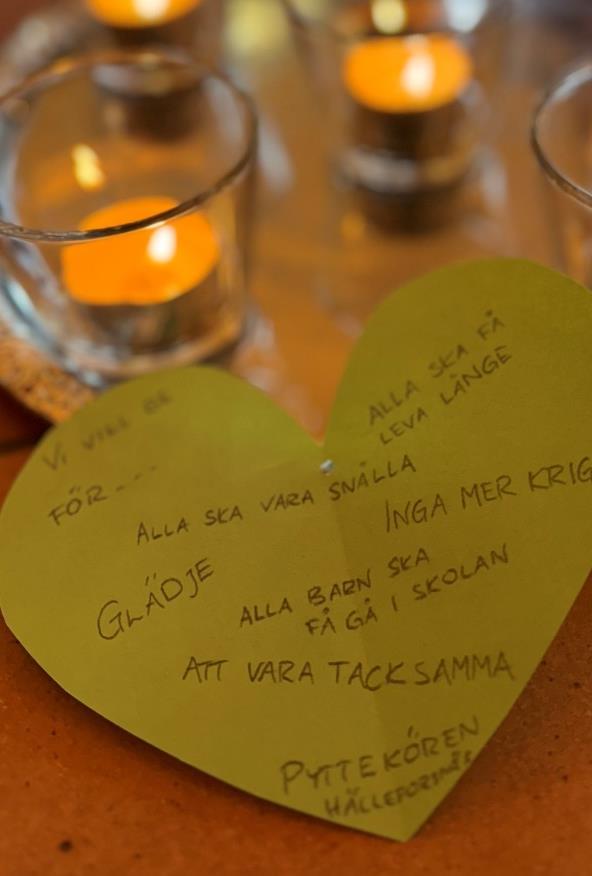 VI VILL BE
FÖR - - -
ALLA SKA FÅ
LEVA LÄNGE
ALLA SKA VARA SNÄLLA
INGA MER KRIG
GLÄDJE
ALLA BARN SKA
FÅ GÅ I SKOLAN
ATT VARA TACKSAMMA
PYTTEKÖREN
HÄLLEFORSNÄS